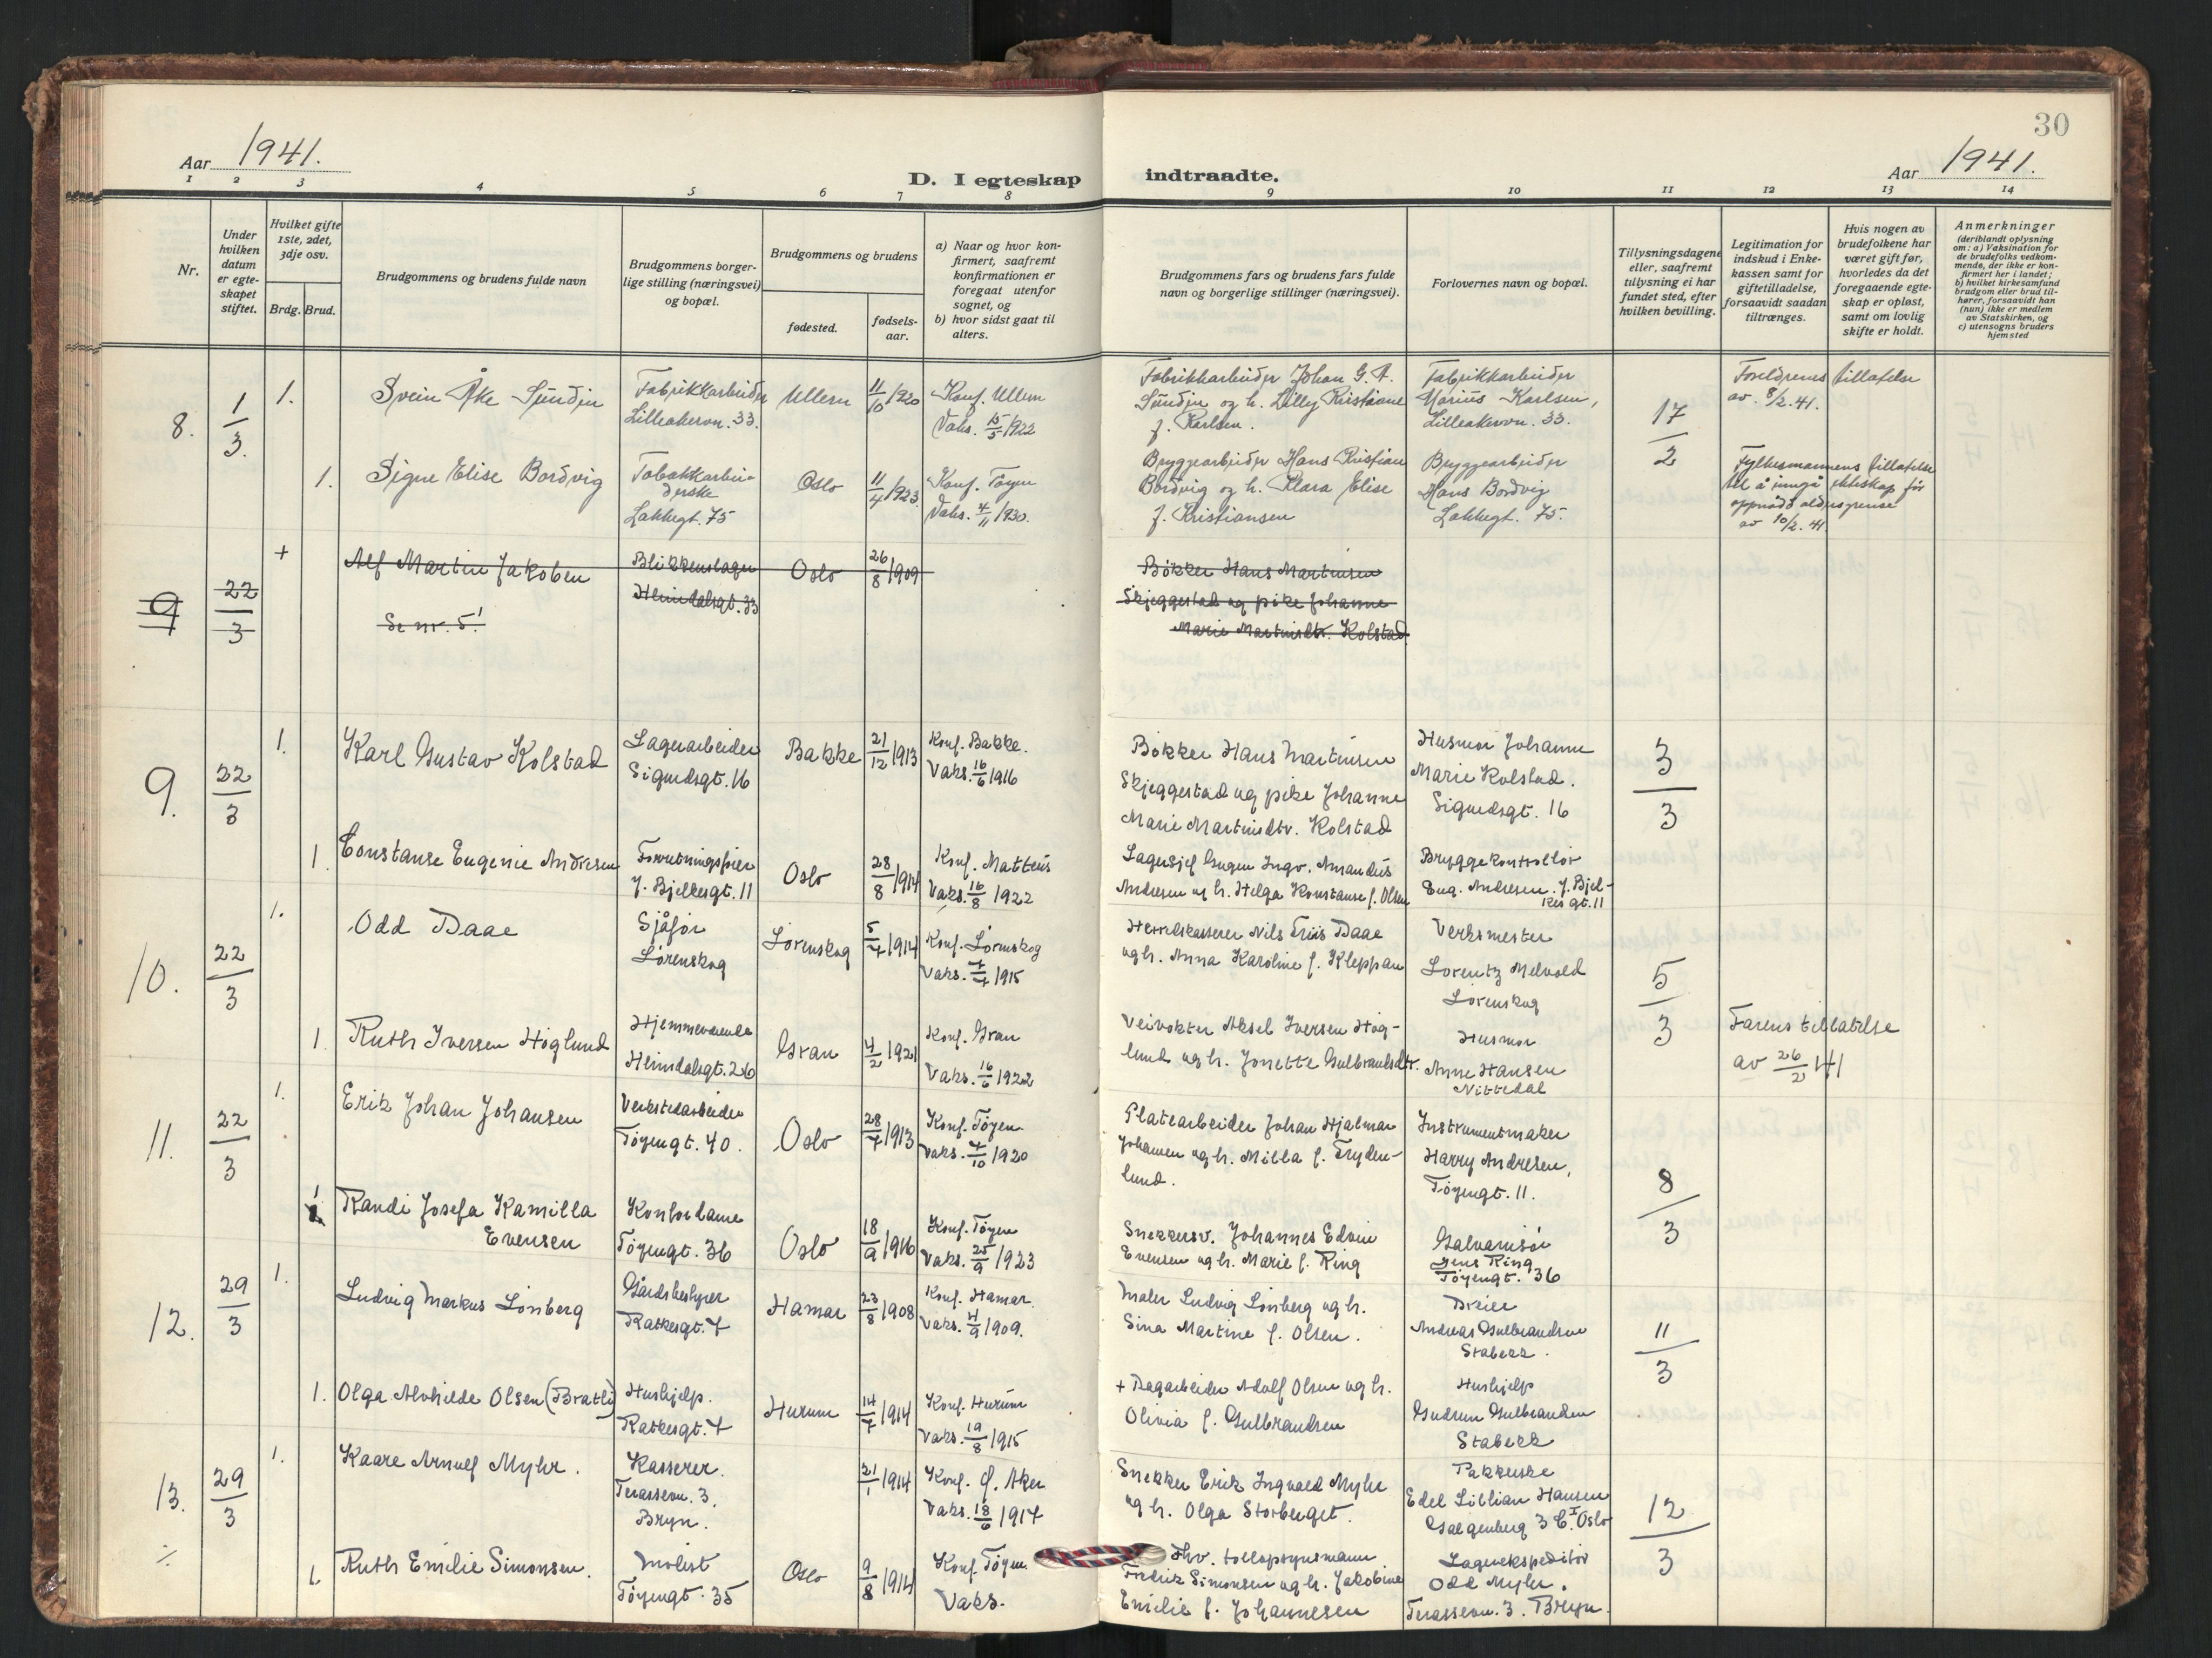 30
Aar 1941.
D. I egteskap indtraadte.
Aar 1941.
1 2 3 4 5 6 7 8 9 10 11 12 13 14
Nr.
Under hvilken datum er egteskapet stiftet.
Hvilket gifte 1ste, 2det, 3dje osv.
Brdg. Brud.
Brudgommens og brudens fulde navn
Brudgommens borgerlige stilling (næringsvei) og bopæl.
Brudgommens og brudens
fødested.
fødselsaar.
a) Naar og hvor konfirmert, saafremt konfirmationen er foregaat utenfor sognet, og
b) hvor sidst gaat til alters.
Brudgommens fars og brudens fars fulde navn og borgerlige stillinger (næringsvei).
Forlovernes navn og bopæl.
Tillysningsdagene eller, saafremt tillysning ei har fundet sted, efter hvilken bevilling.
Legitimation for indskud i Enkekassen samt for giftetilladelse, forsaavidt saadan tiltrænges.
Hvis nogen av brudefolkene har været gift før, hvorledes da det foregaaende egteskap er opløst, samt om lovlig skifte er holdt.
Anmerkninger
(deriblandt oplysning om: a) Vaksination for de brudefolks vedkommende, der ikke er konfirmert her i landet; b) hvilket kirkesamfund brudgom eller brud tilhører, forsaavidt han (hun) ikke er medlem av Statskirken, og c) utensogns bruders hjemsted
8. 1/3. 1.
Svein Åke Sundin
Fabrikkarbeider
Lilleakervn. 33.
Ullern
11/10 1920
Konf. Ullern
Vaks. 15/5 1922
Fabrikkarbeider Johan G. A.
Sundin og h. Lilly Kristiane
f. Karlsen.
Fabrikkarbeider
Marius Karlsen,
Lilleakervn. 33.
17/2
Foreldrenes tillatelse
av. 8/2. 41.
1.
Signe Elise Bordvig
Tobakkarbeiderske
Lakkegt. 75
Oslo
11/4 1923.
Konf. Tøyen
Vaks. 4/11 1930.
Bryggearbeider Hans Kristian
Bordvig og h. Klara Elise
f. Kristiansen
Bryggearbeider
Hans Bordvig
Lakkegt. 75.
Fylkesmannens tillatelse
til å inngå ekteskap før
oppnådd aldersgrense
av 10/2. 41.
9 22/3 +
Alf Martin Jakobsen
Se nr. 5!
Blikkenslager
Heimdalsgt. 33
Oslo
26/8 1909
Bøkker Hans Martinsen
Skjeggestad og pike Johanne
Marie Martinsdtr. Kolstad
9. 22/3 1.
Karl Gustav Kolstad
Lagerarbeider
Sigurdsgt. 16
Bakke
21/12 1913
Konf. Bakke.
Vaks. 16/6 1916
Bøkker Hans Martinsen
Skjeggestad og pike Johanne
Marie Martinsdtr. Kolstad
Husmor Johanne
Marie Kolstad.
Sigurdsgt. 16
3/3
1
Constanse Eugenie Andresen
J. Bjelkesgt. 11
Oslo
28/8 1914
Konf. Matteus
Vaks. 16/8 1922
Lagersjef Eugen Ingv. Amandus
Andresen og h. Helga Konstanse f. Olsen
Bryggekontrollør
Eug. Andresen. J. Bjelkes gt. 11
10. 22/3 1.
Odd Daae
Sjåfør
Lørenskog
Lørenskog
5/7 1914
Konf. Lørenskog
Vaks. 7/7 1915
Herredskasserer Nils Friis Daae
og h. Anna Karoline f. Kleppan
Verksmester
Lorentz Melvold
Lørenskog
5/3
1
Ruth Iversen Høglund
Hjemmeværende
Heimdalsgt. 26
Gran
4/2 1921
Konf. Gran
Vaks. 16/6 1922
Veivokter Aksel Iversen Høglund og h. Jonette Gulbrandsdtr.
Husmor
Anne Hansen
Nittedal
Farens tillatelse
av 26/2 41
11. 22/3 1.
Erik Johan Johansen
Verkstedarbeider
Tøyengt. 40.
Oslo
28/7 1913
Konf. Tøyen
Vaks. 7/10 1920
Platearbeider Johan Hjalmar
Johansen og h. Milla f. Frydenlund.
Instrumentmaker
Harry Andresen,
Tøyengt. 11.
8/3
1
Randi Josefa Kamilla
Evensen
Kontordame
Tøyengt. 36
Oslo
18/9 1916
Konf. Tøyen
Vaks. 25/9 1923
Snekkersv. Johannes Edvin
Evensen og h. Marie f. Ring
Galvanisør
Jens Ring
Tøyengt. 36
12. 29/3 1.
Ludvig Markus Lönberg
Gårdsbestyrer
Ratkesgt. 7
Hamar
23/8 1908
Konf. Hamar.
Vaks. 4/9 1909.
Maler Ludvig Lönberg og h.
Sina Martine f. Olsen.
Dreier
Andreas Gulbrandsen
Stabekk.
11/3
1.
Olga Alvhilde Olsen (Bratli)
Hushjelp.
Ratkesgt. 7
Hurum
14/7 1914
Konf. Hurum
Vaks. 19/8 1915
+ Dagarbeider Adolf Olsen og h.
Olivia f. Gulbrandsen
Hushjelp
Gudrun Gulbrandsen
Stabekk
13. 29/3 1.
Kaare Arnulf Myhr.
Kasserer.
Terassevn. 3.
Bryn.
21/1 1914
Konf. Ø. Aker
Vaks. 18/6 1917
Snekker Erik Ingvald Myhr
og h. Olga Storberget.
Pakkerske
Edel Lillian Hansen
Galgenberg 3 C. I Oslo
12/3
÷
1.
Ruth Emilie Simonsen.
Modist
Tøyengt. 35
Oslo
9/8 1914
Konf. Tøyen
Vaks.
Fhv. tollopsynsmann
Fredrik Simonsen og h. Jakobine
Emilie f. Johannesen
Lagerekspeditør
Odd Myhr.
Terassevn. 3. Bryn.